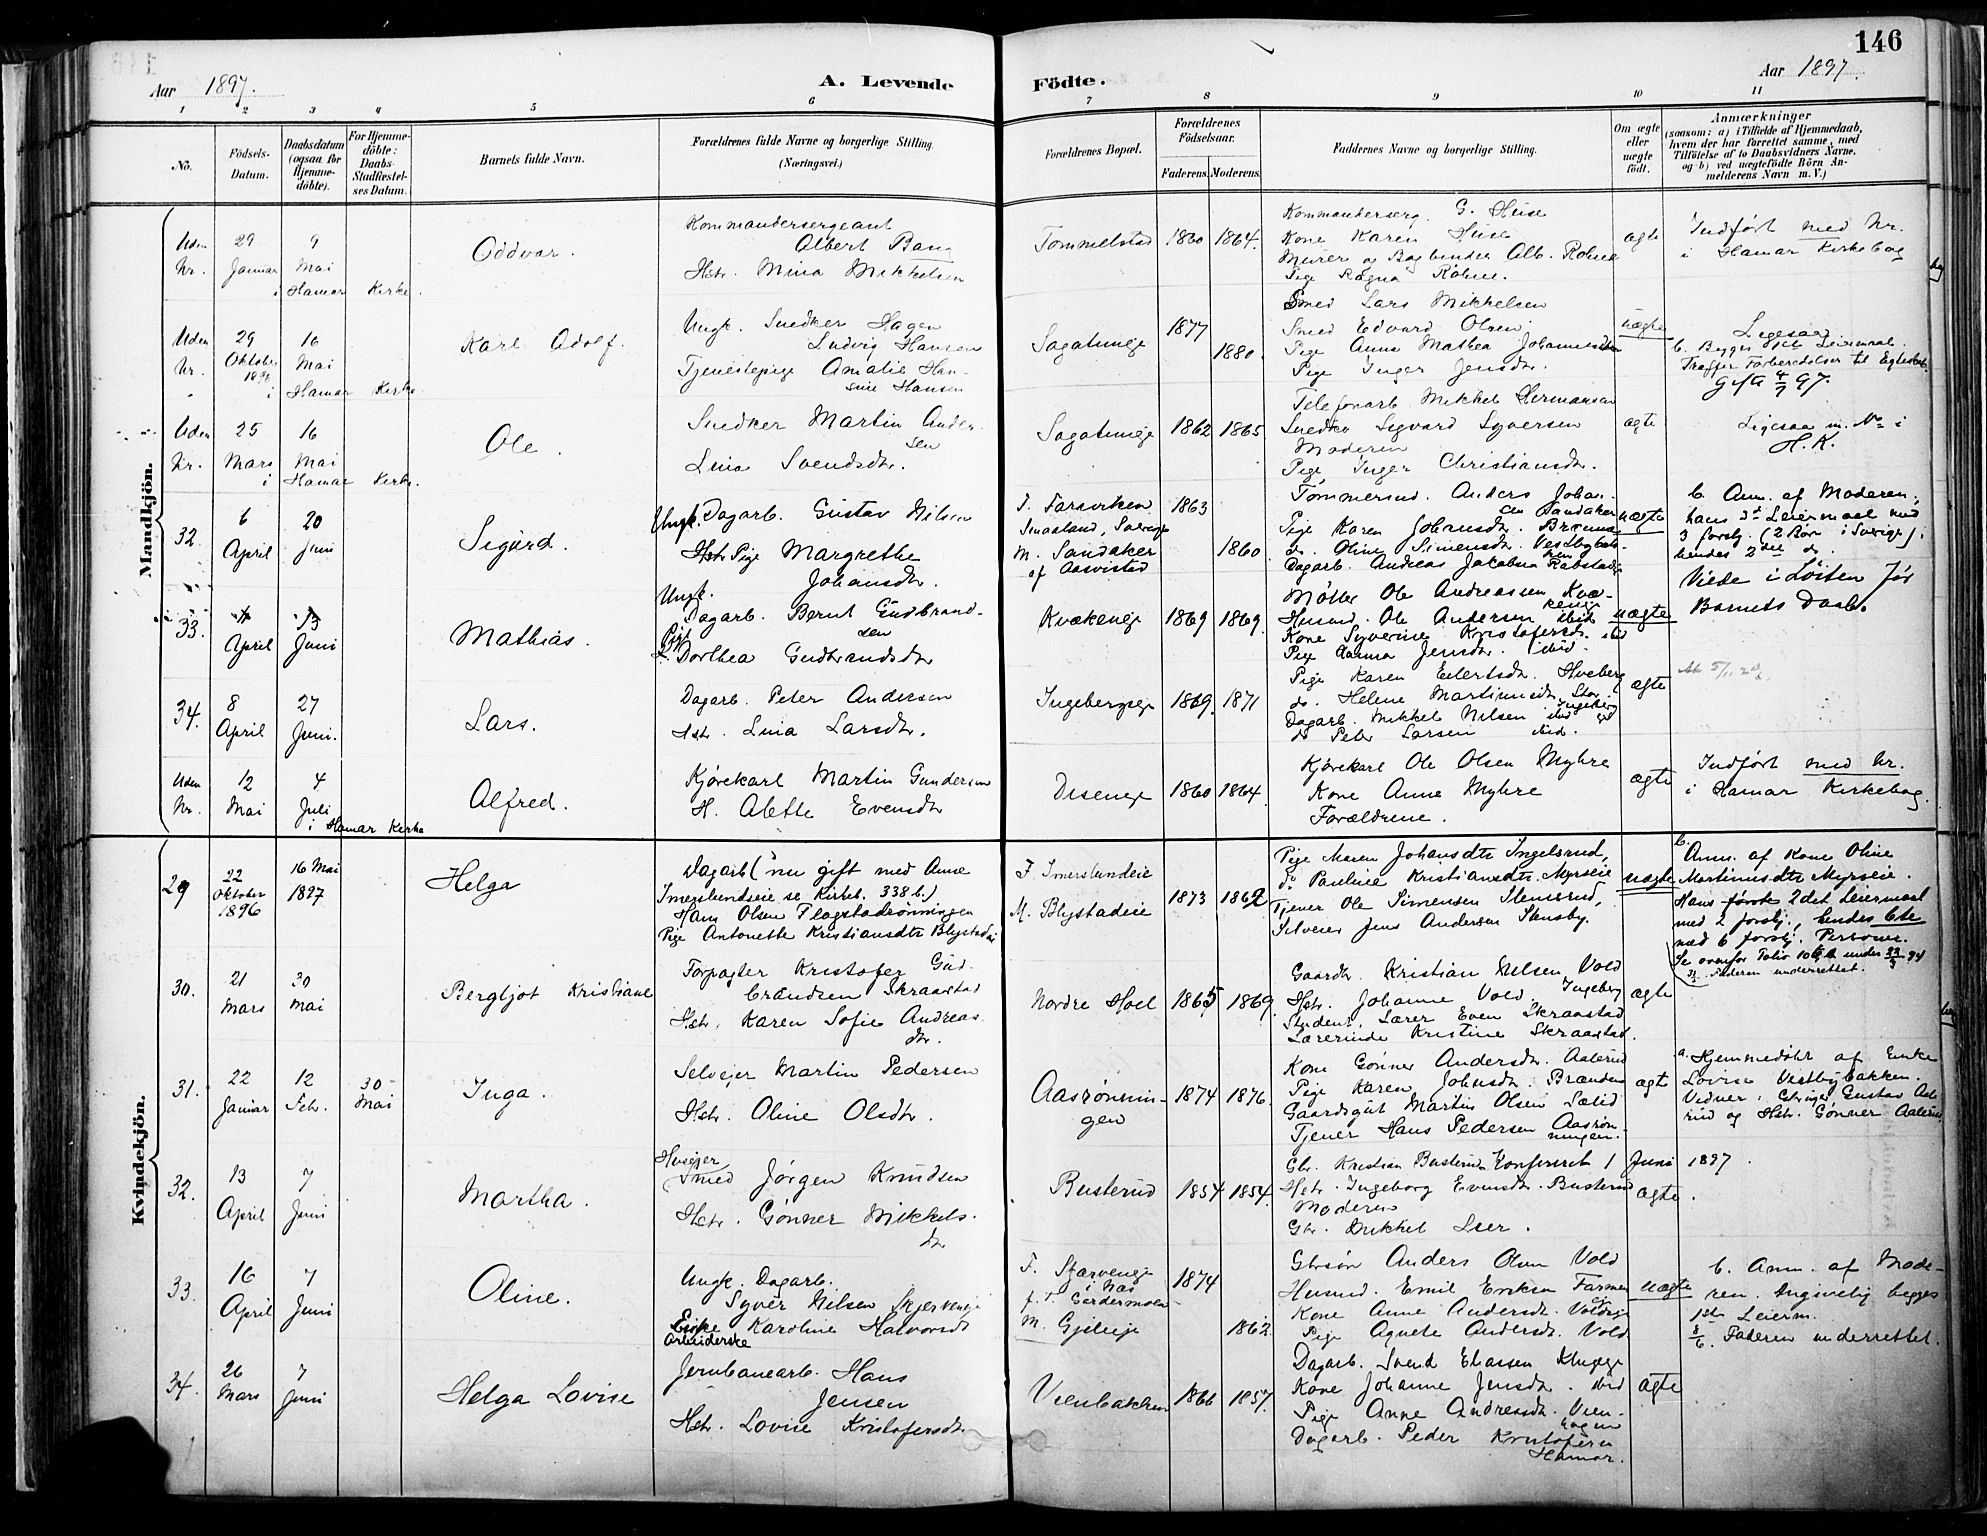 146
Aar 1897.
A. Levende Födte.
Aar 1897.
1 2 3 4 5 6 7 8 9 10 11
No.
Födsels-Datum.
Daabsdatum (ogsaa for Hjemme-döbte).
For Hjemme-döbte: Daabs-Stadfæstel-ses Datum.
Barnets fulde Navn.
Forældrenes fulde Navne og borgerlige Stilling. (Næringsvei.)
Forældrenes Bopæl.
Forældrenes Födselsaar.
Faderens. Moderens.
Faddernes Navne og borgerlige Stilling.
Om ægte eller uægte födt.
Anmærkninger (saasom: a) i Tilfælde af Hjemmedaab, hvem der har forrettet samme, med Tilföielse af to Daabsvidners Navne, og b) ved uægtefödte Börn An-melderens Navn m. V.)
Mandkjön.
Uden Nr.
29 Januar
9 Mai
i Hamar Kirke.
Oddvar.
Kommandersergeant
Albert Bang
Hstr. Mina Mikkelsen
Tommelstad
1860 1864.
Kommanderserg. G. Heise
Kone Karen Heise
Murer og Bogbinder Alb. Rohne
Pige Ragna Rohne.
ægte
Indført med Nr.
i Hamar Kirkebog
Uden Nr.
29 Oktober 1896
16 Mai
i Hamar Kirke
Karl Adolf.
Ungk. Snedker Hagen
Ludvig Hansen
Tjenestepige Amalie Han-
sine Hansen
Sagatuneje
1877
1880.
Smed Lars Mikkelsen
Smed Edvard Olsen.
Pige Anna Mathea Johannesdtr
Pige Inger Jensdtr.
uægte
Ligesaa
b. Begges 1ste Leiermaal.
Træffer Forberedelser til Egteskab.
Gift 4/7 97.
Uden Nr.
25 Mars
16 Mai
i Hamar Kirke.
Ole.
Snedker Martin Ander-
sen
Lina Svendsdtr.
Sagatuneje
1862 1865
Telefonarb. Mikkel Hermansen
Snedker Sigvard Syversen
Moderen
Pige Inger Christiansdtr.
ægte
Ligesaa m. No i
H.K.
32.
6 April
20 Juni
Sigurd.
Ungk. Dagarb. Gustav Nilsen
Pige Margrethe
Johansdtr.
F. Farsviken
Smaaland, Sverige
M. Sandaker
af Aasvistad
1863
1860.
Tømmersmd. Anders Johan-
sen Sandaker
Pige Karen Johansdtr. Brænna
do. Oline Simensdtr. Vestbybak-
ken
Dagarb. Andreas Jakobsen Rabstad
uægte
b. Anm. af Moderen,
hans 3d Leiermaal med
3 forskj. (2 Børn i Sverige),
hendes 2det do.
Viede i Løiten før
Barnets Daab.
33.
April
13 Juni
Mathias.
Ungk.
Dagarb. Bernt Gudbrand-
sen
Pige Dorthea Gudbrandsdtr
Kvækeneje
1869 1869.
Møller Ole Andreassen Kvæ-
keneje
Husmd. Ole Andersen ibid
Kone Syverine Kristofersdtr. ibid
Pige Hanna Jensdtr. ibid.
uægte
34.
8 April
27 Juni.
Lars.
Dagarb. Peter Andersen
Hstr. Lina Larsdtr.
Ingebergseje
1869. 1871
Pige Karen Eilertsdtr. Hveberg
do. Helene Martinusdtr. Stor-
Ingeberg
Dagarb. Mikkel Nilsen ibid
do Peter Larsen ibid.
ægte
Uden Nr.
12 Mai
4 Juli
i Hamar Kirke
Alfred.
Kjørekarl Martin Gundersen
H. Alette Evensdtr
Diseneje
1860 1864.
Kjørekarl Ole Olsen Myhre
Kone Anne Myhre
Forældrene.
ægte
Indført med Nr.
i Hamar Kirkebog.
Kvindekjön.
29
22 Oktober 1896
16 Mai 1897
Helga
Dagarb. (nu gift med Anne
Imerslundseie se Kirkeb. 338 b.)
Hans Olsen Flagstadrønningen
Pige Antonette Kristiansdtr Blystadeie
F. Imerslundeie
M. Blystadeie
1873 1862
Pige Maren Johansdtr Ingelsrud,
do Pauline Kristiansdtr Myrseie
Tjener Ole Simensen Stensrud,
Selveier Jens Andersen Stensby.
uægte
b.
Anm. af Kone Oline
Martinusdtr Myrseie.
Hans første 2det Leiermaal
med 2 forskj., hendes 6te
med 6 forskj. Personer.
Faderen underrettet.
30.
21 Mars
30 Mai
Bergljot Kristiane
Forpagter Kristofer Gud-
brandsen Skraastad
Hstr. Karen Sofie Andreas-
dtr.
Nordre Hoel
1865 1869.
Gaardbr. Kristian Nilsen Vold
Ingeberg
Hstr. Johanne Vold
Student, Lærer Even Skraastad
Lærerinde Kristine Skraastad.
ægte
31.
22 Januar
12 Febr.
30 Mai
Inga.
Selvejer Martin Pedersen
Hstr. Oline Olsdtr.
Aasrønnin-
gen
1874 1876.
Kone Gønner Andersdtr. Aalerud
Pige Karen Johnsdtr. Brænden
Gaardsgut Martin Olsen Sælid
Tjener Hans Pedersen Aasrøn-
ningen.
ægte
a. Hjemmedøbt af Enke
Lovise Vestbybakken.
Vidner: Gustav Aale-
rud og Hstr. Gønner Aalerud.
32.
13 April
7 Juni
Martha.
Husejer
Smed Jørgen Knudsen
Hstr. Gønner Mikkels-
dtr
Busterud
1854 1854.
Gbr. Kristian Busterud Konfereret 1 Juni 1897.
Hstr. Ingeborg Evensdtr. Busterud
Moderen
Gbr. Mikkel Lier.
ægte.
33.
16 April
7 Juni
Oline.
Ungk. Dagarb.
Syver Nilsen Skjerveneje
Enke Karoline Halvorsdtr
Arbeiderske
F. Skjærveneje
i Næs
f. t. Gardermoen
M. Gjilueje
1874
1862.
Gbrsøn Anders Olsen Vold
Husmd. Emil Eriksen Farmen
Kone Anne Andersdtr. Voldseje
Pige Agnete Andersdtr. Vold
uægte
b. Anm. af Mode-
ren. Angivelig begges
1ste Leierm.
Faderen underrettet.
34.
26 Mars
7 Juni
Helga Lovise
Jernbanearb. Hans
Jensen
Hstr. Lovise Kristofersdtr
Vienbakken
1866 1857.
Dagarb. Svend Eliassen
Kone Johanne Jensdtr. ibid
Pige Anne Andreasdtr. Vien-
hagen
Dagarb. Peder Kristofersen
Hamar.
ægte